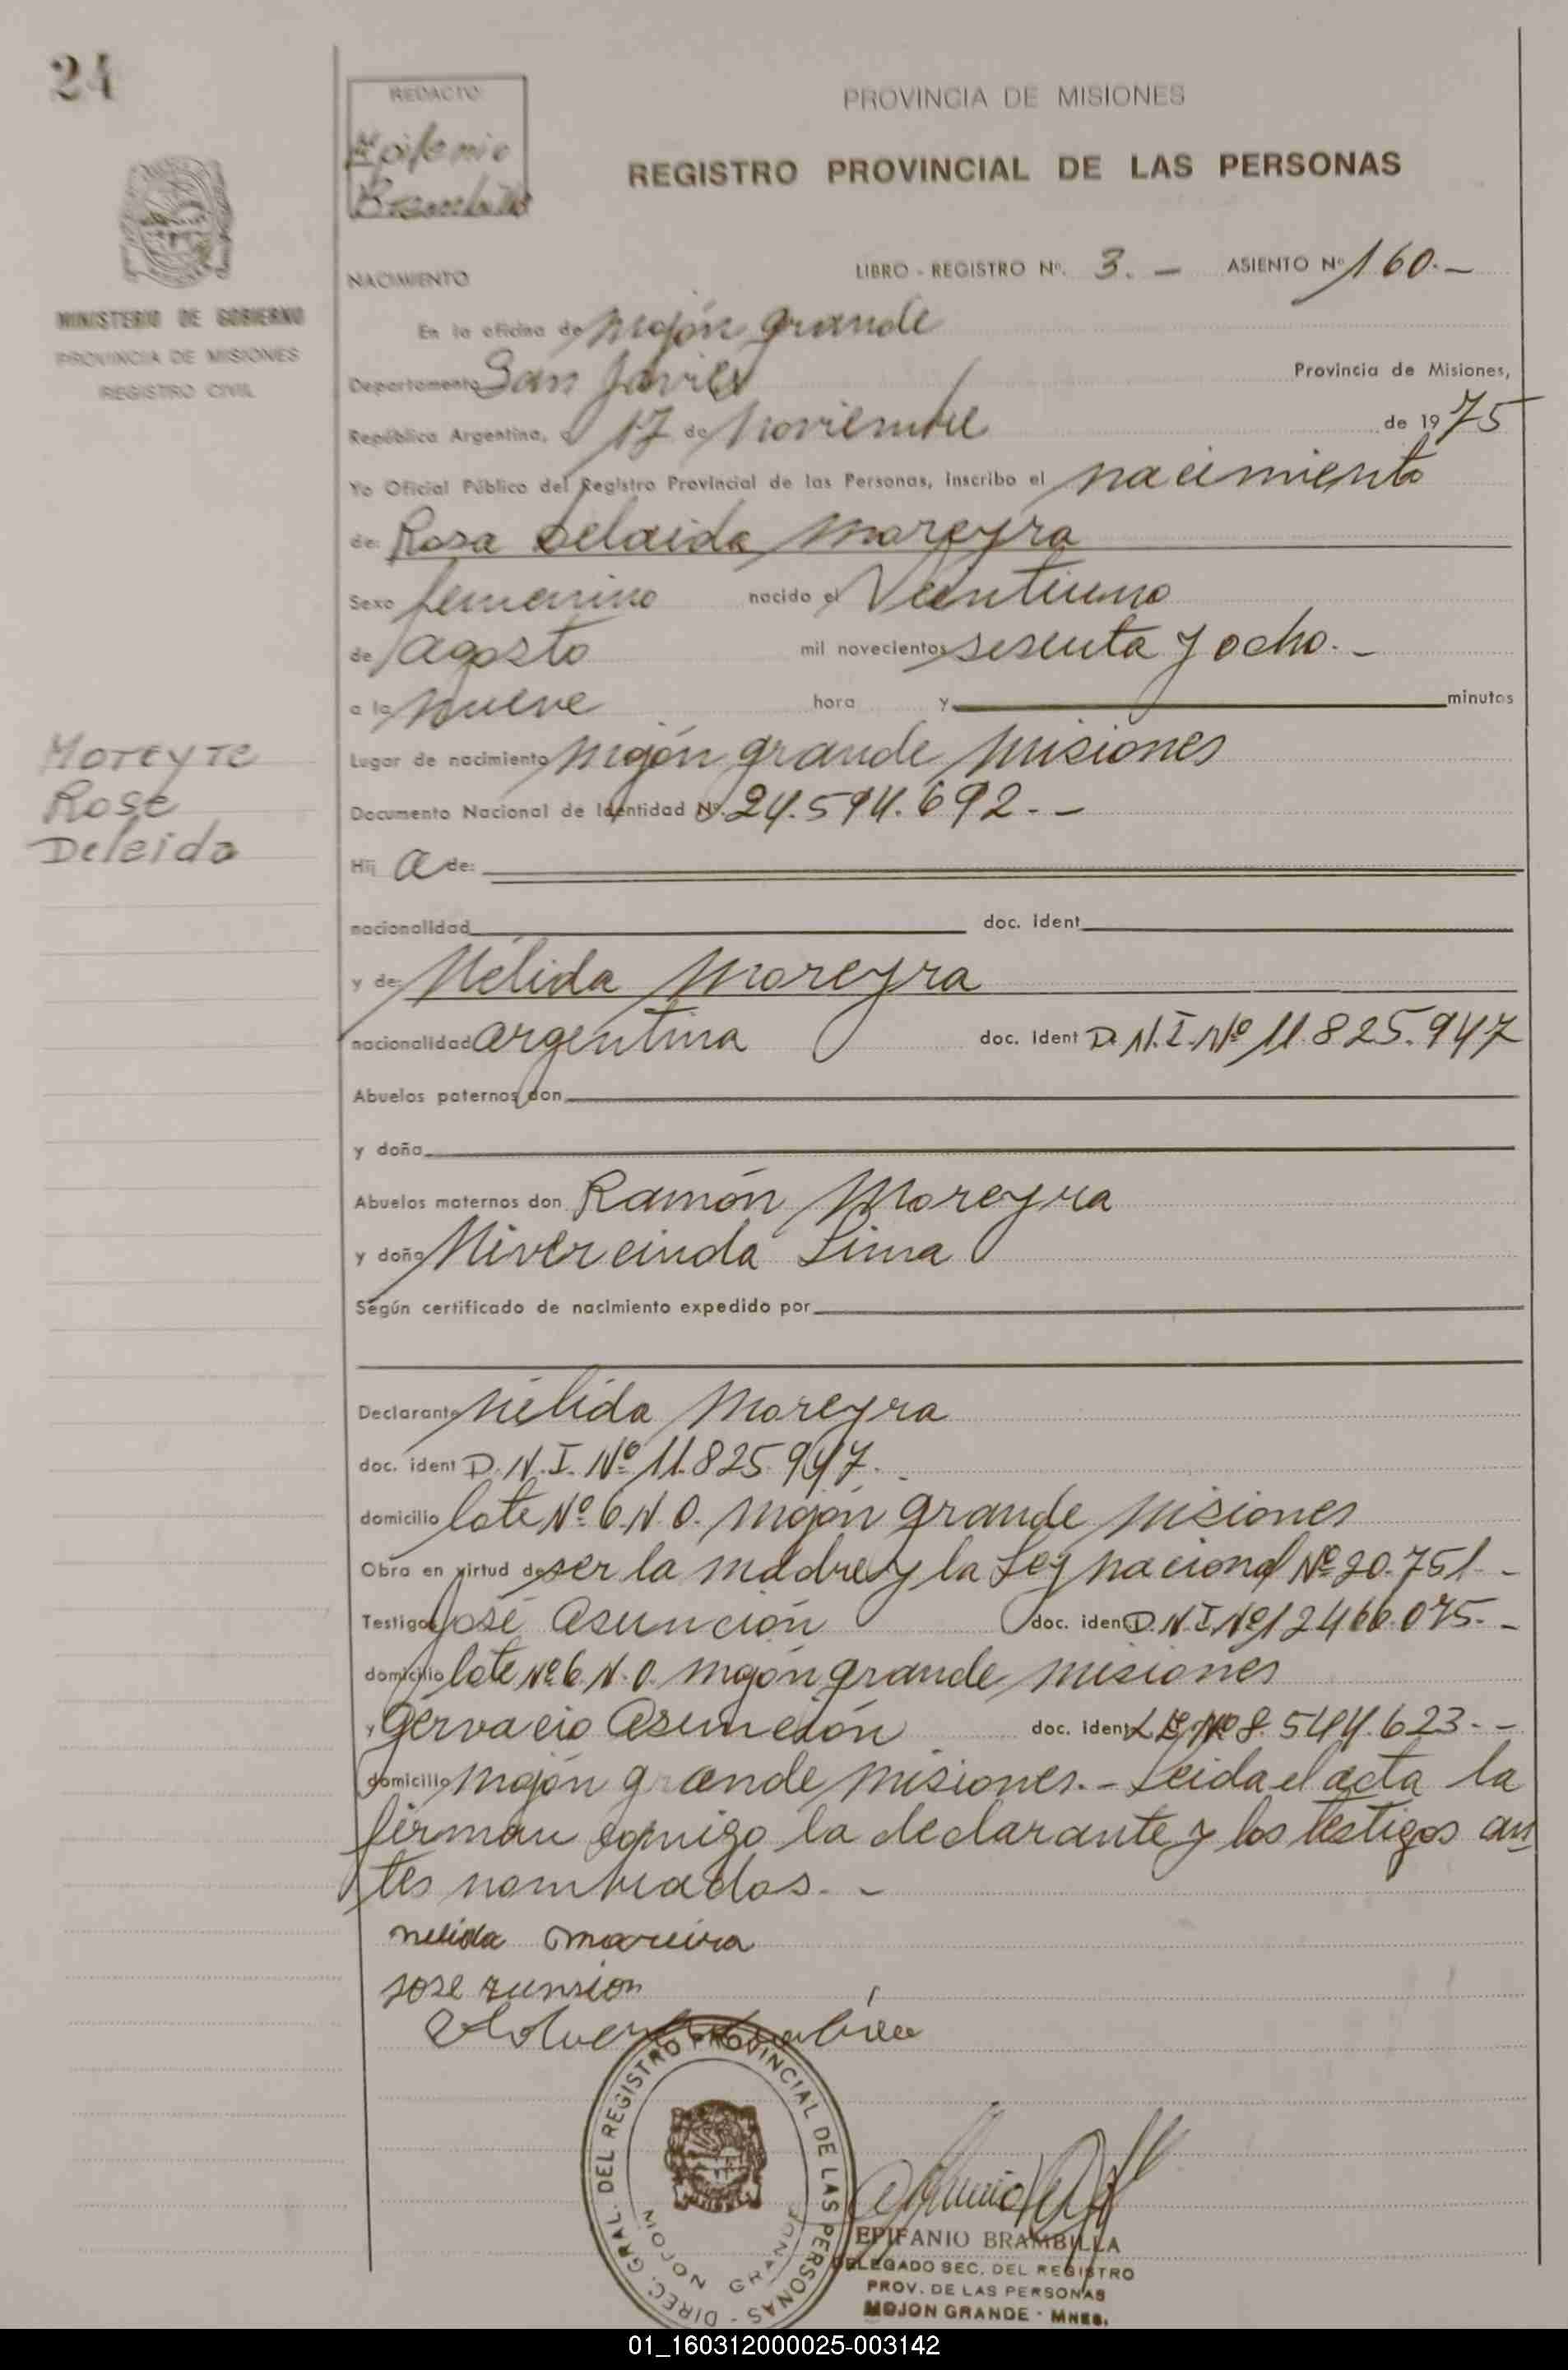 24
REDACTO
Epifanio
Brambilla
PROVINCIA DE MISIONES
REGISTRO PROVINCIAL DE LAS PERSONAS
MINISTERIO DE GOBIERNO
PROVINCIA DE MISIONES
REGISTRO CIVIL
NACIMIENTO
LIBRO - REGISTRO Nº. 3.- ASIENTO Nº 160.-
En la oficina de Mojón grande
Departamento San Javier Provincia de Misiones,
República Argentina, a 17 de Noviembre de 1975
Yo Oficial Público del Registro Provincial de las Personas, inscribo el nacimiento
de: Rosa Delaida Moreyra
Sexo femenino nacido el Veintiuno
de agosto mil novecientos sesenta y ocho.-
a la nueve hora y minutos
Lugar de nacimiento Mojón grande Misiones
Documento Nacional de Identidad Nº. 24.594.692.-
Moreyra
Rosa
Delaida
Hij a de:
nacionalidad doc. ident
y de: Nélida Moreyra
nacionalidad argentina doc. ident D.N.I. Nº 11.825.947
Abuelos paternos don
y doña
Abuelos maternos don Ramón Moreyra
y doña Nivercinda Lima
Según certificado de nacimiento expedido por
Declarante Nélida Moreyra
doc. ident D.N.I. Nº 11.825.947.
domicilio lote Nº 6.N.O. Mojón grande Misiones
Obra en virtud de ser la madre y la Ley nacional Nº 20.751.-
Testigos José Asunción doc. ident D.N.I. Nº 12466.075.-
domicilio lote Nº 6.N.O. Mojón grande Misiones
y Gervacio Asunción doc. ident L.E. Nº 8.544.623.-
domicilio Mojón grande Misiones.- Leida el acta la
firman conmigo la declarante y los testigos an
tes nombrados.-
nelida moreira
jose zunsion
DIREC. GRAL. DEL REGISTRO PROVINCIAL DE LAS PERSONAS -
MOJON GRANDE
EPIFANIO BRAMBILLA
DELEGADO SEC. DEL REGISTRO
PROV. DE LAS PERSONAS
MOJON GRANDE - MNES.
01_160312000025-003142